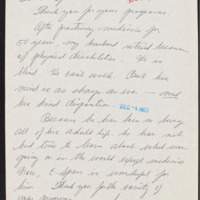 Thank you for your programs
After practicing medicine for
50 years, my husband retired because
of physical disabilities. He is
blind. He can't walk. But his
mind is as sharp as ever — and
his kind disposition. DEC
Because he has been so busy
all of his adult life, he has not
had time to learn about what was
going on in the world except medicine
Now, C-Span is wonderful for
him. Thank you for the variety of
your programs